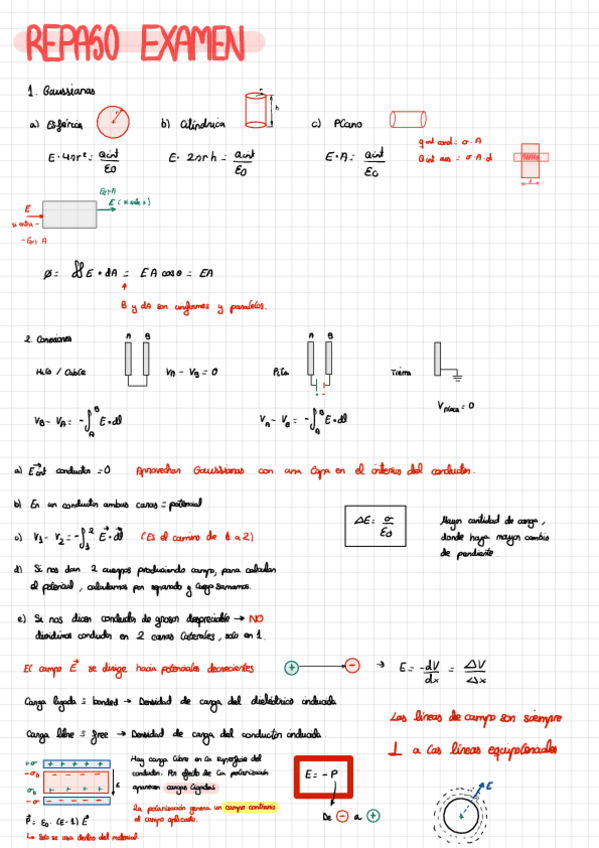 REPASO EXAMEN
1. Gaussianas
a) Esférica
b) Cilíndrica
c) Plano
r
h
E·4πr² = Qint/ε0
E· 2πrh = Qint/ε0
E·A = Qint/ε0
q int cond = σ·A
Qint ais = σ·A·d
E
si entra -
-E·A
E (si sale +)
∅ = ∯E·dA = EA cosθ = EA
E y dA son uniformes y paralelos.
2. Conexiones
A B
A B
Hilo / Cable
VA - VB = 0
Pila
Tierra
Vplaca = 0
VB - VA = -∫ᴬᴮ E·dl
VA - VB = -∫ᴬᴮ E·dl
a) E⃗int conductor = 0 Aprovechar Gaussianas con una tapa en el interior del conductor.
b) En un conductor ambas caras = potencial
c) V1 - V2 = -∫₁² E⃗·dl⃗ (Es el camino de 1 a 2)
ΔE = σ/ε0
Mayor cantidad de carga,
donde haya mayor cambio
de pendiente
d) Si nos dan 2 cuerpos produciendo campo, para calcular
el potencial, calculamos por separado y luego sumamos.
e) Si nos dicen conductor de grosor despreciable → NO
dividimos conductor en 2 caras laterales, solo en 1.
El campo E⃗ se dirige hacia potenciales decrecientes
+ → -
→ E = -dV/dx = ΔV/Δx
Carga ligada = bonded → Densidad de carga del dieléctrico inducida
Carga libre = free → Densidad de carga del conductor inducida
Las líneas de campo son siempre
⊥ a las líneas equipotenciales
+σ
-σb
σb
-σ
E
Hay carga libre en la superficie del
conductor. Por efecto de la polarización
aparecen cargas ligadas
E = -P
De - a +
La polarización genera un campo contrario
al campo aplicado.
P⃗ = ε0·(ε-1)E⃗
Lo solo se usa dentro del material.
+
E